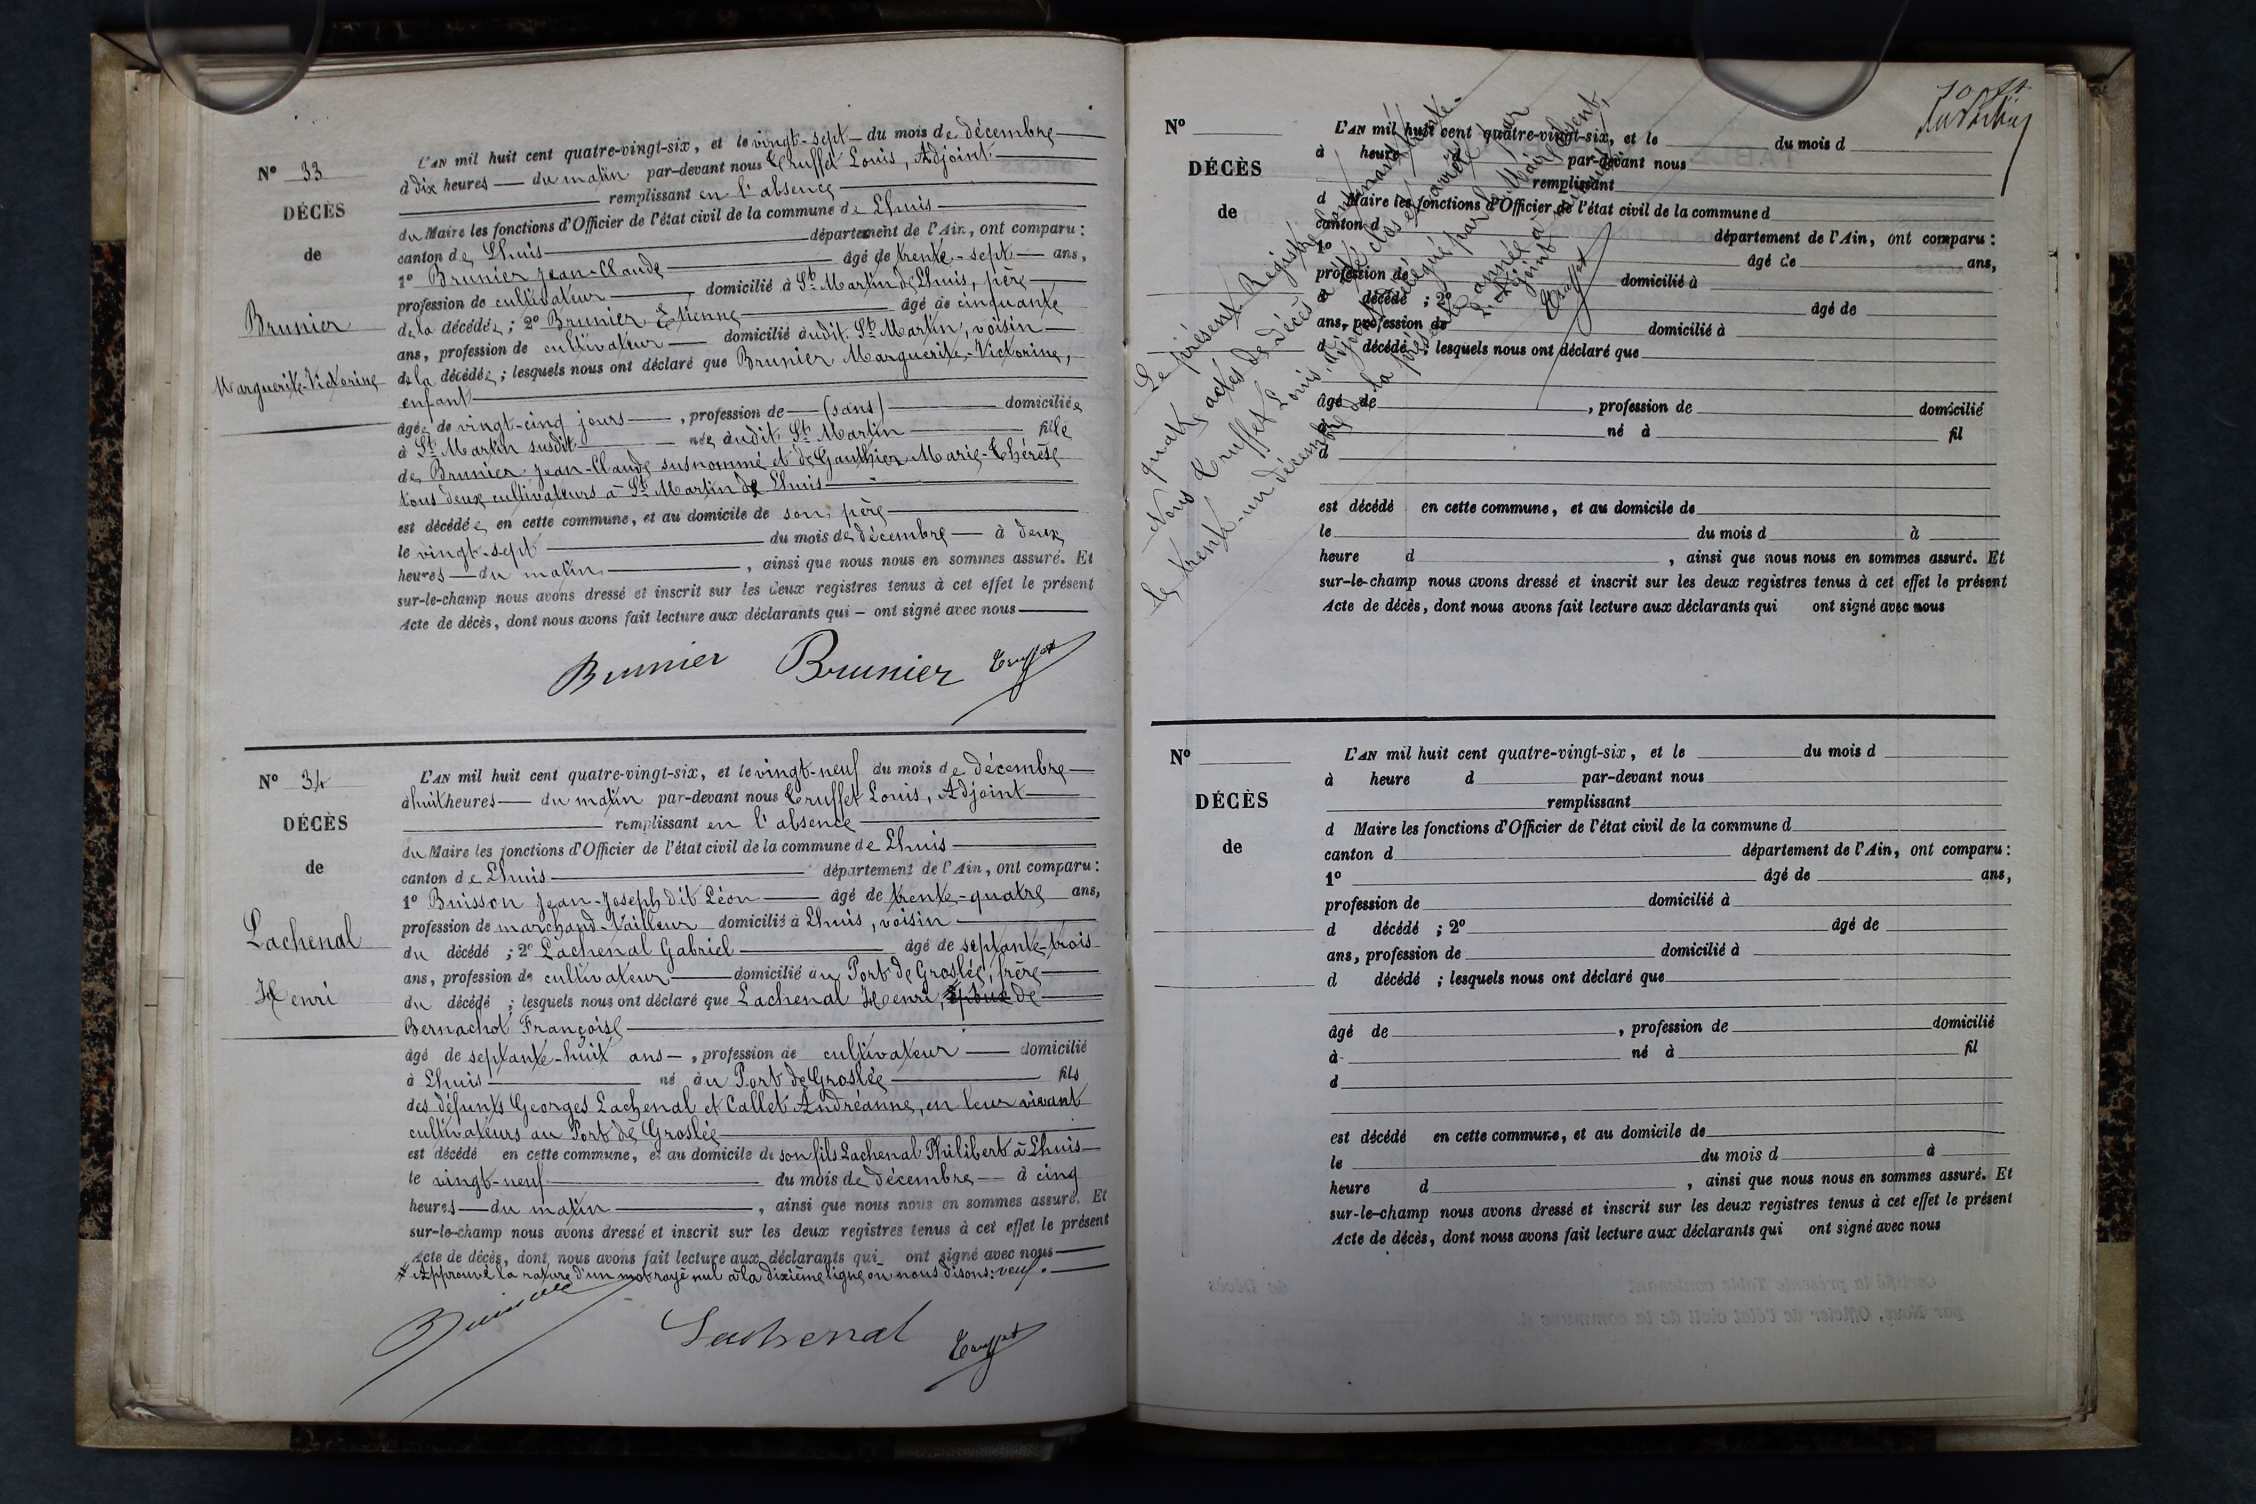 N° 33
DÉCÈS
de
Brunier
Marguerite-Victorine
L'AN mil huit cent quatre-vingt-six, et le vingt-sept du mois de décembre
à dix heures du matin par-devant nous Truffet Louis, Adjoint
remplissant en l'absence
du Maire les fonctions d'Officier de l'état civil de la commune de Lhuis
canton de Lhuis département de l'Ain, ont comparu :
1° Brunier Jean-Claude âgé de trente-sept ans,
profession de cultivateur domicilié à St. Martin de Lhuis, père
de la décédée ; 2° Brunier Etienne âgé de cinquante
ans, profession de cultivateur domicilié audit St. Martin, voisin
de la décédée ; lesquels nous ont déclaré que Brunier Marguerite-Victorine,
enfant
âgée de vingt-cinq jours, profession de (sans) domiciliée
à St. Martin susdit née audit St. Martin fille
de Brunier Jean-Claude susnommé et de Gauthier Marie-Thérèse
tous deux cultivateurs à St. Martin de Lhuis
est décédée en cette commune, et au domicile de son père
le vingt-sept du mois de décembre à deux
heures du matin, ainsi que nous nous en sommes assuré. Et
sur-le-champ nous avons dressé et inscrit sur les deux registres tenus à cet effet le présent
Acte de décès, dont nous avons fait lecture aux déclarants qui ont signé avec nous
Brunier Brunier Truffet
N° 34
DÉCÈS
de
Lachenal
Henri
L'AN mil huit cent quatre-vingt-six, et le vingt-neuf du mois de décembre
à huit heures du matin par-devant nous Truffet Louis, Adjoint
remplissant en l'absence
du Maire les fonctions d'Officier de l'état civil de la commune de Lhuis
canton de Lhuis département de l'Ain, ont comparu :
1° Buisson Jean-Joseph dit Léon âgé de trente-quatre ans,
profession de marchand-tailleur domicilié à Lhuis, voisin
du décédé ; 2° Lachenal Gabriel âgé de septante-trois
ans, profession de cultivateur domicilié au Port de Groslée, frère
du décédé ; lesquels nous ont déclaré que Lachenal Henri, époux de
Bernachot Françoise
âgé de septante-huit ans, profession de cultivateur domicilié
à Lhuis né au Port de Groslée fils
des défunts Georges Lachenal et Callet Andréanne, en leur vivant
cultivateurs au Port de Groslée
est décédé en cette commune, et au domicile de son fils Lachenal Philibert à Lhuis
le vingt-neuf du mois de décembre à cinq
heures du matin, ainsi que nous nous en sommes assuré. Et
sur-le-champ nous avons dressé et inscrit sur les deux registres tenus à cet effet le présent
Acte de décès, dont nous avons fait lecture aux déclarants qui ont signé avec nous
# Approuvé la rature d'un mot rayé nul à la dixième ligne où nous disons : veuf.
Buisson
Lachenal Truffet
N°
DÉCÈS
de
L'AN mil huit cent quatre-vingt-six, et le du mois d
à heure d par-devant nous
remplissant
d Maire les fonctions d'Officier de l'état civil de la commune d
canton d département de l'Ain, ont comparu :
1° âgé de ans,
profession de domicilié à
d décédé ; 2° âgé de
ans, profession de domicilié à
d décédé ; lesquels nous ont déclaré que
âgé de , profession de domicilié
à né à fil
d
est décédé en cette commune, et au domicile de
le du mois d à
heure d , ainsi que nous nous en sommes assuré. Et
sur-le-champ nous avons dressé et inscrit sur les deux registres tenus à cet effet le présent
Acte de décès, dont nous avons fait lecture aux déclarants qui ont signé avec nous
Le présent Registre contenant trente-
quatre actes de décès a été clos et arrêté par
Nous Truffet Louis, Adjoint délégué par le Maire absent,
le trente-un décembre de la présente année à
L'Adjoint
Truffet
N°
DÉCÈS
de
L'AN mil huit cent quatre-vingt-six, et le du mois d
à heure d par-devant nous
remplissant
d Maire les fonctions d'Officier de l'état civil de la commune d
canton d département de l'Ain, ont comparu :
1° âgé de ans,
profession de domicilié à
d décédé ; 2° âgé de
ans, profession de domicilié à
d décédé ; lesquels nous ont déclaré que
âgé de , profession de domicilié
à né à fil
d
est décédé en cette commune, et au domicile de
le du mois d à
heure d , ainsi que nous nous en sommes assuré. Et
sur-le-champ nous avons dressé et inscrit sur les deux registres tenus à cet effet le présent
Acte de décès, dont nous avons fait lecture aux déclarants qui ont signé avec nous